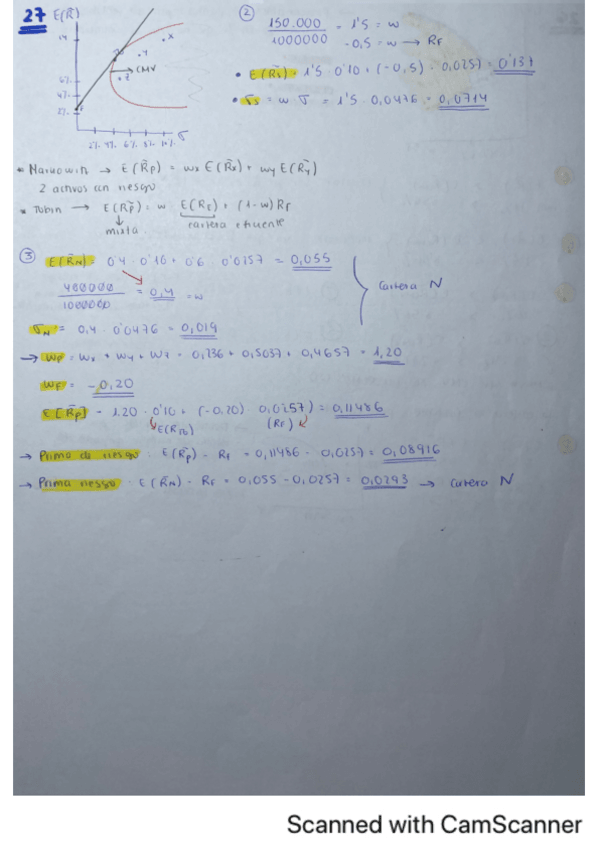 27 E(R̃)
14
6%
4%
2%
X
Y
CMV
Z
σ
2% 4% 6% 8% 10%
②
150.000 / 1000000 = 1'5 = w
-0,5 = w → RF
• E(R̃s) = 1'5 · 0'10 + (-0,5) · 0,0257 = 0'137
• σs = w · σ = 1'5 · 0,0476 = 0,0714
* Markowitz → E(R̃p) = wx E(R̃x) + wy E(R̃y)
2 activos con riesgo
* Tobin → E(R̃p) = w E(RE) + (1-w) RF
mixta cartera eficiente
③ E(R̃N) = 0'4 · 0'10 + 0'6 · 0'0257 = 0,055
400000 / 1000000 = 0,4 = w
Cartera N
σN = 0,4 · 0'0476 = 0,019
→ Wp = wx + wy + wz = 0,236 + 0,5037 + 0,4657 = 1,20
WF = -0,20
E[R̃p] = 1.20 · 0'10 + (-0.20) · 0,0257) = 0,11486
(RF)
→ Prima de riesgo E(R̃p) - RF = 0,11486 - 0,0257 = 0,08916
→ Prima riesgo E(R̃N) - RF = 0,055 - 0,0257 = 0,0293 → Cartera N
Scanned with CamScanner